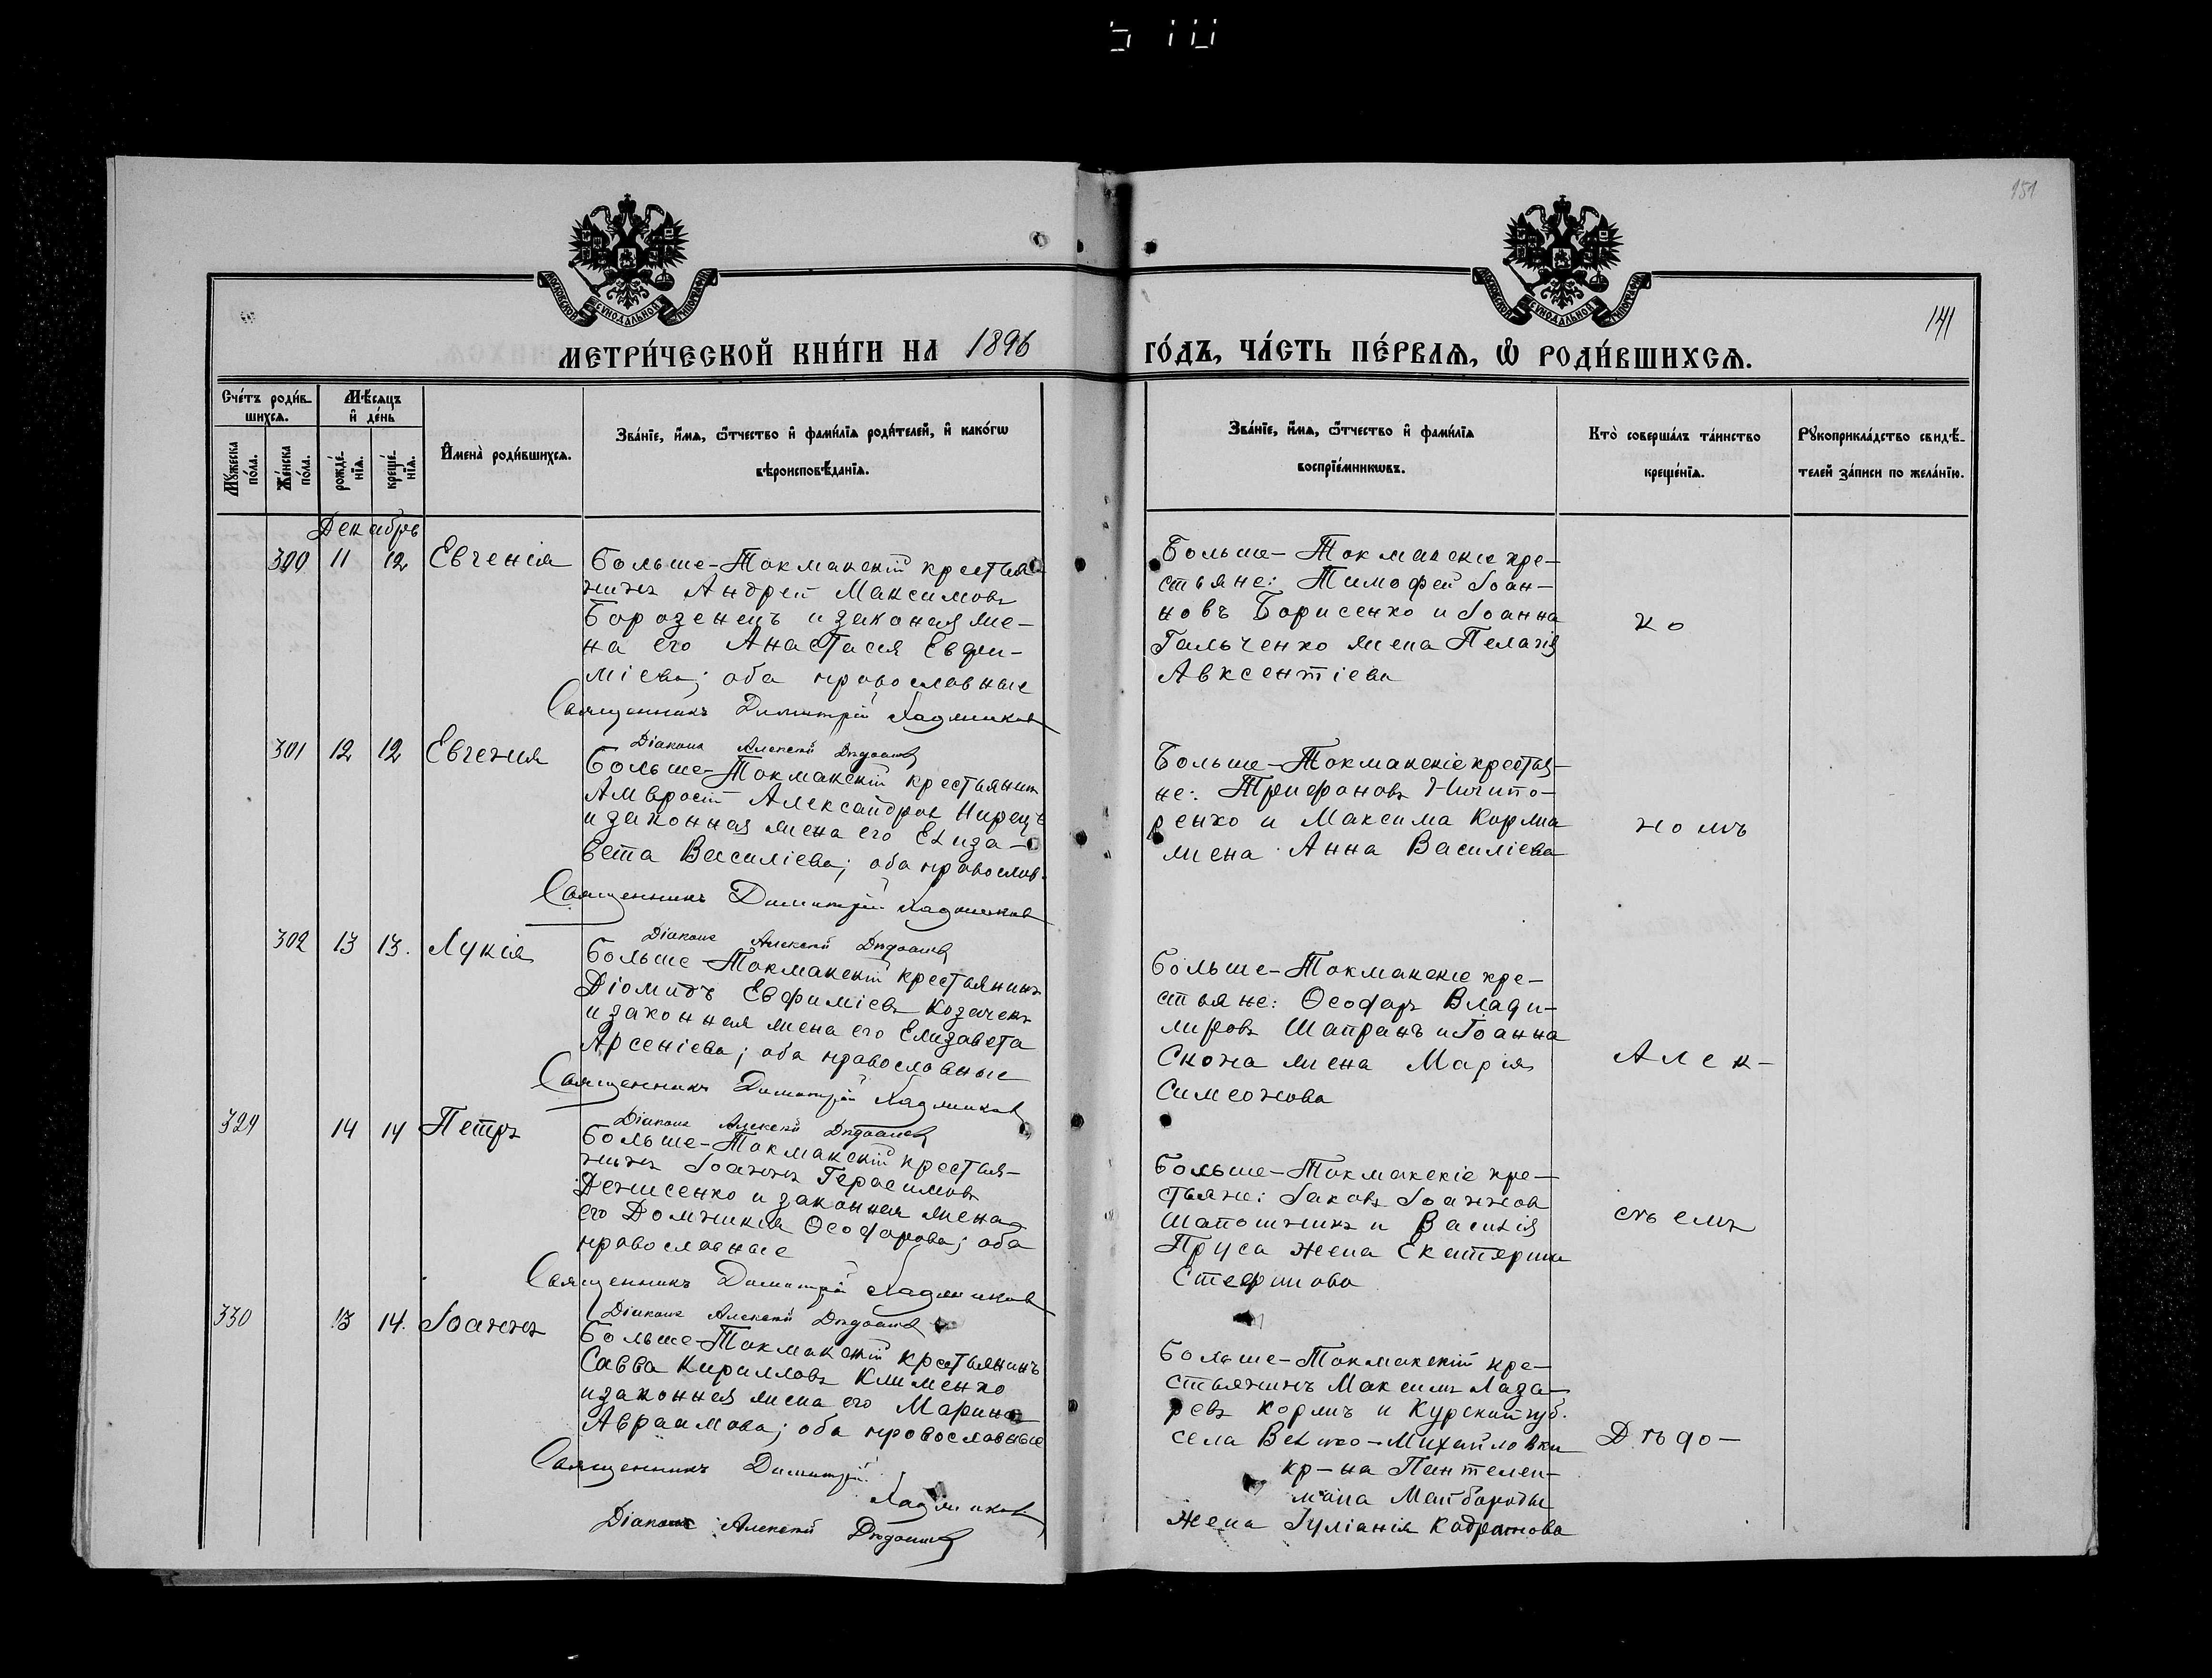 151
141
МЕТРИ́ЧЕСКОЙ КНИ́ГИ НА 1896
ГО́ДЪ, ЧА́СТЬ ПЕ́РВАѦ, Ѽ РОДИ́ВШИХСѦ.
Сче́тъ роди́в-
шихсѧ.
Мѣ́сѧцъ
и҆ де́нь
Мꙋ́жеска
по́ла.
Же́нска
по́ла.
рожде́-
нїѧ.
креще́-
нїѧ.
И҆мена̀ роди́вшихсѧ.
Зва́нїе, и҆́мѧ, ѻ҆́тчество и҆ фами́лїѧ роди́телей, и҆ како́гѡ
вѣроисповѣ́данїѧ.
Зва́нїе, и҆́мѧ, ѻ҆́тчество и҆ фами́лїѧ
воспрїе́мникѡвъ.
Кто̀ соверша́лъ та́инство
креще́нїѧ.
Рꙋкоприкла́дство свидѣ́-
телей за́писи по жела́нїю.
Декабрь
300 11 12 Евгенія
Больше-Токмакскій крестья-
нинъ Андрей Максимовъ
Борозенецъ и законая же-
на его Анастасія Евфи-
міева; оба православные
Священникъ Димитрій
Діаконъ Алексѣй
Больше-Токмакскіе кре-
стьяне: Тимофей Іоан-
новъ Борисенко и Іоанна
Гальченко жена Пелагія
Авксентіева
ко
301 12 12 Евгенія
Больше-Токмакскій крестьянинъ
Амвросій Александровъ Нирецъ
и законная жена его Елиза-
вета Василіева; оба православ.
Священникъ Димитрій
Діаконъ Алексѣй
Больше-Токмакскіе крестья-
не: Трифоновъ Ничипо-
ренко и Максима Коржа
жена Анна Василіева
номъ
302 13 13. Лукія
Больше-Токмакскій крестьянинъ
Діомидъ Евфиміевъ Козаченъ
и законная жена его Елизавета
Арсеніева; оба православные
Священникъ Димитрій
Діаконъ Алексѣй
Больше-Токмакскіе кре-
стьяне: Ѳеодоръ Влади-
мировъ Шапранъ и Іоанна
жена Марія
Симеонова
Алек-
329 14 14 Петръ
Больше-Токмакскій крестья-
нинъ Іоаннъ Герасимовъ
Денисенко и законная жена
его Домникія Ѳеодорова; оба
православные
Священникъ Димитрій
Діаконъ Алексѣй
Больше-Токмакскіе кре-
стьяне: Іаковъ Іоанновъ
Шапошникъ и Василія
Пруса жена Екатерина
Стефанова
сѣемъ
330 13 14. Іоаннъ
Больше-Токмакскій крестьянинъ
Савва Кирилловъ Клименко
и законная жена его Марина
Авраамова; оба православные
Священникъ Димитрій
Діаконъ Алексѣй
Больше-Токмакскій кре-
стьянинъ Максимъ Лаза-
ревъ Коржъ и Курской губ.
села Велико-Михайловки
кр-на Пантелей-
мона Майбороды
жена Іуліанія
Дѣдо-